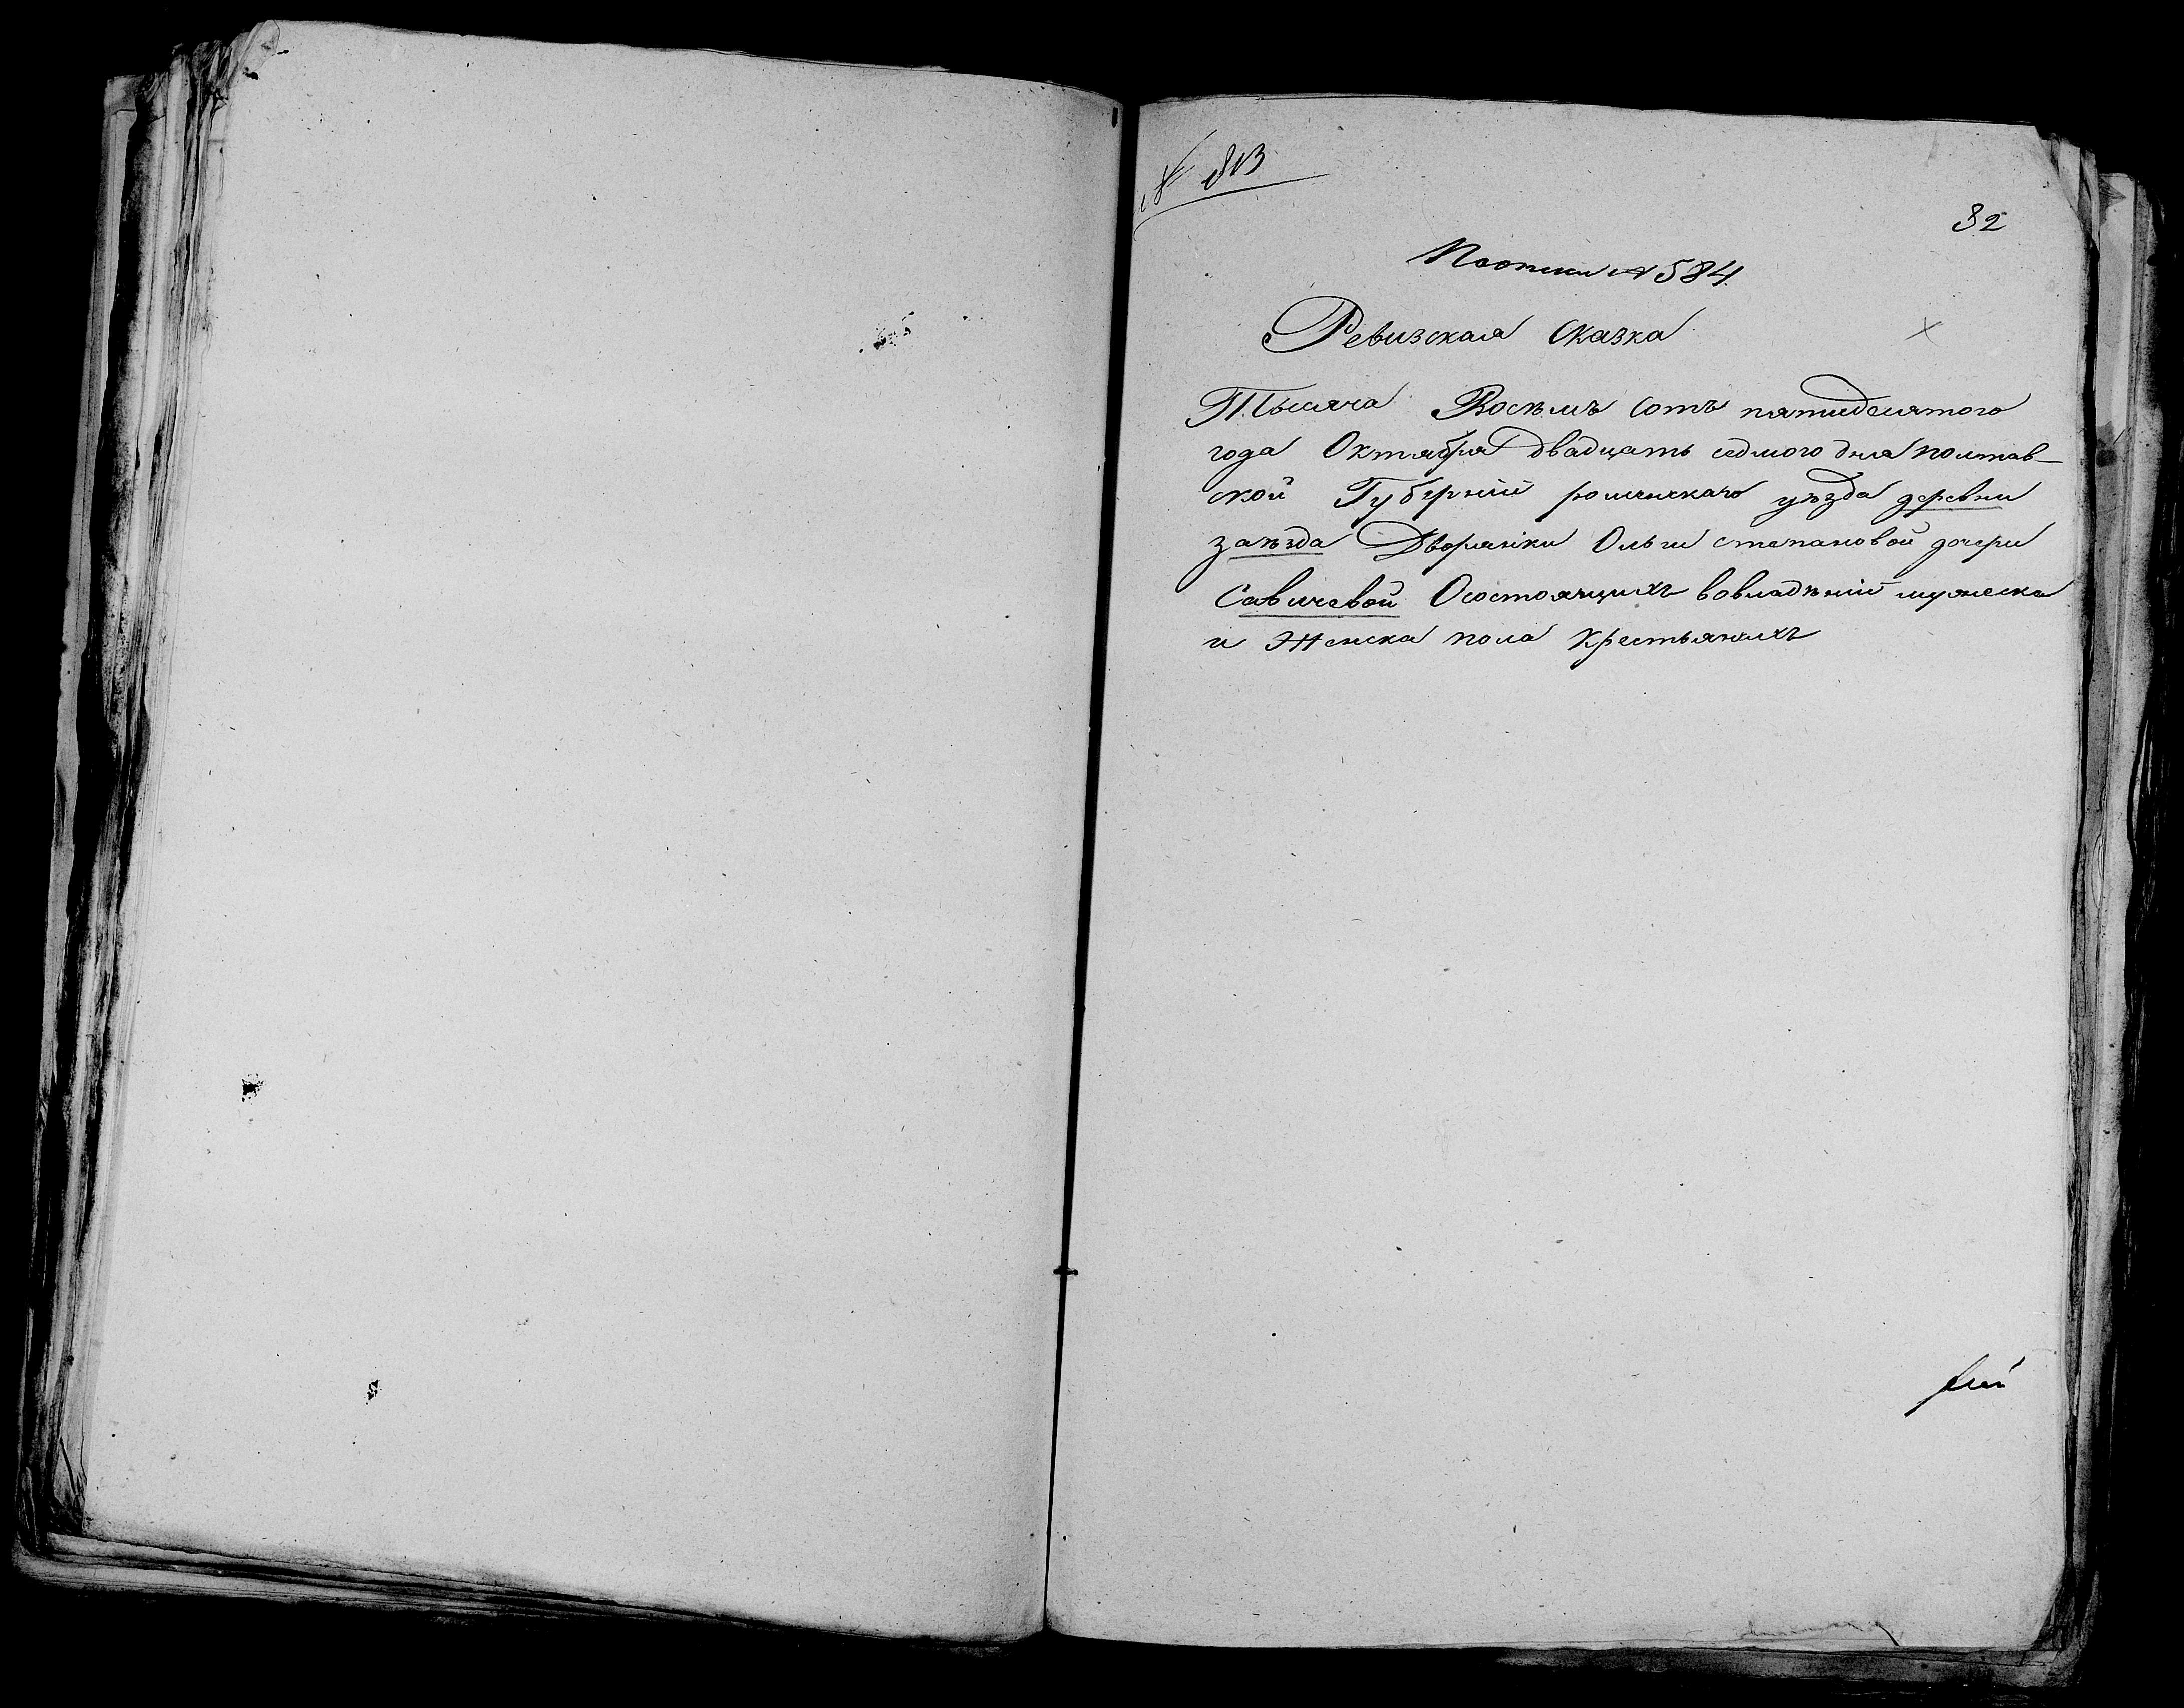 № 813
82
По описи № 584
Ревизская Сказка
Тысяча Восемъ Сотъ пятидесятого
года Октября двадцать седмого дня полтав-
ской Губерніи роменскаго уѣзда деревни
заѣзда Дворянки Ольги степановой дочери
Савичевой Осостоящихъ вовладѣніи мужеска
и Женска пола крестьянахъ